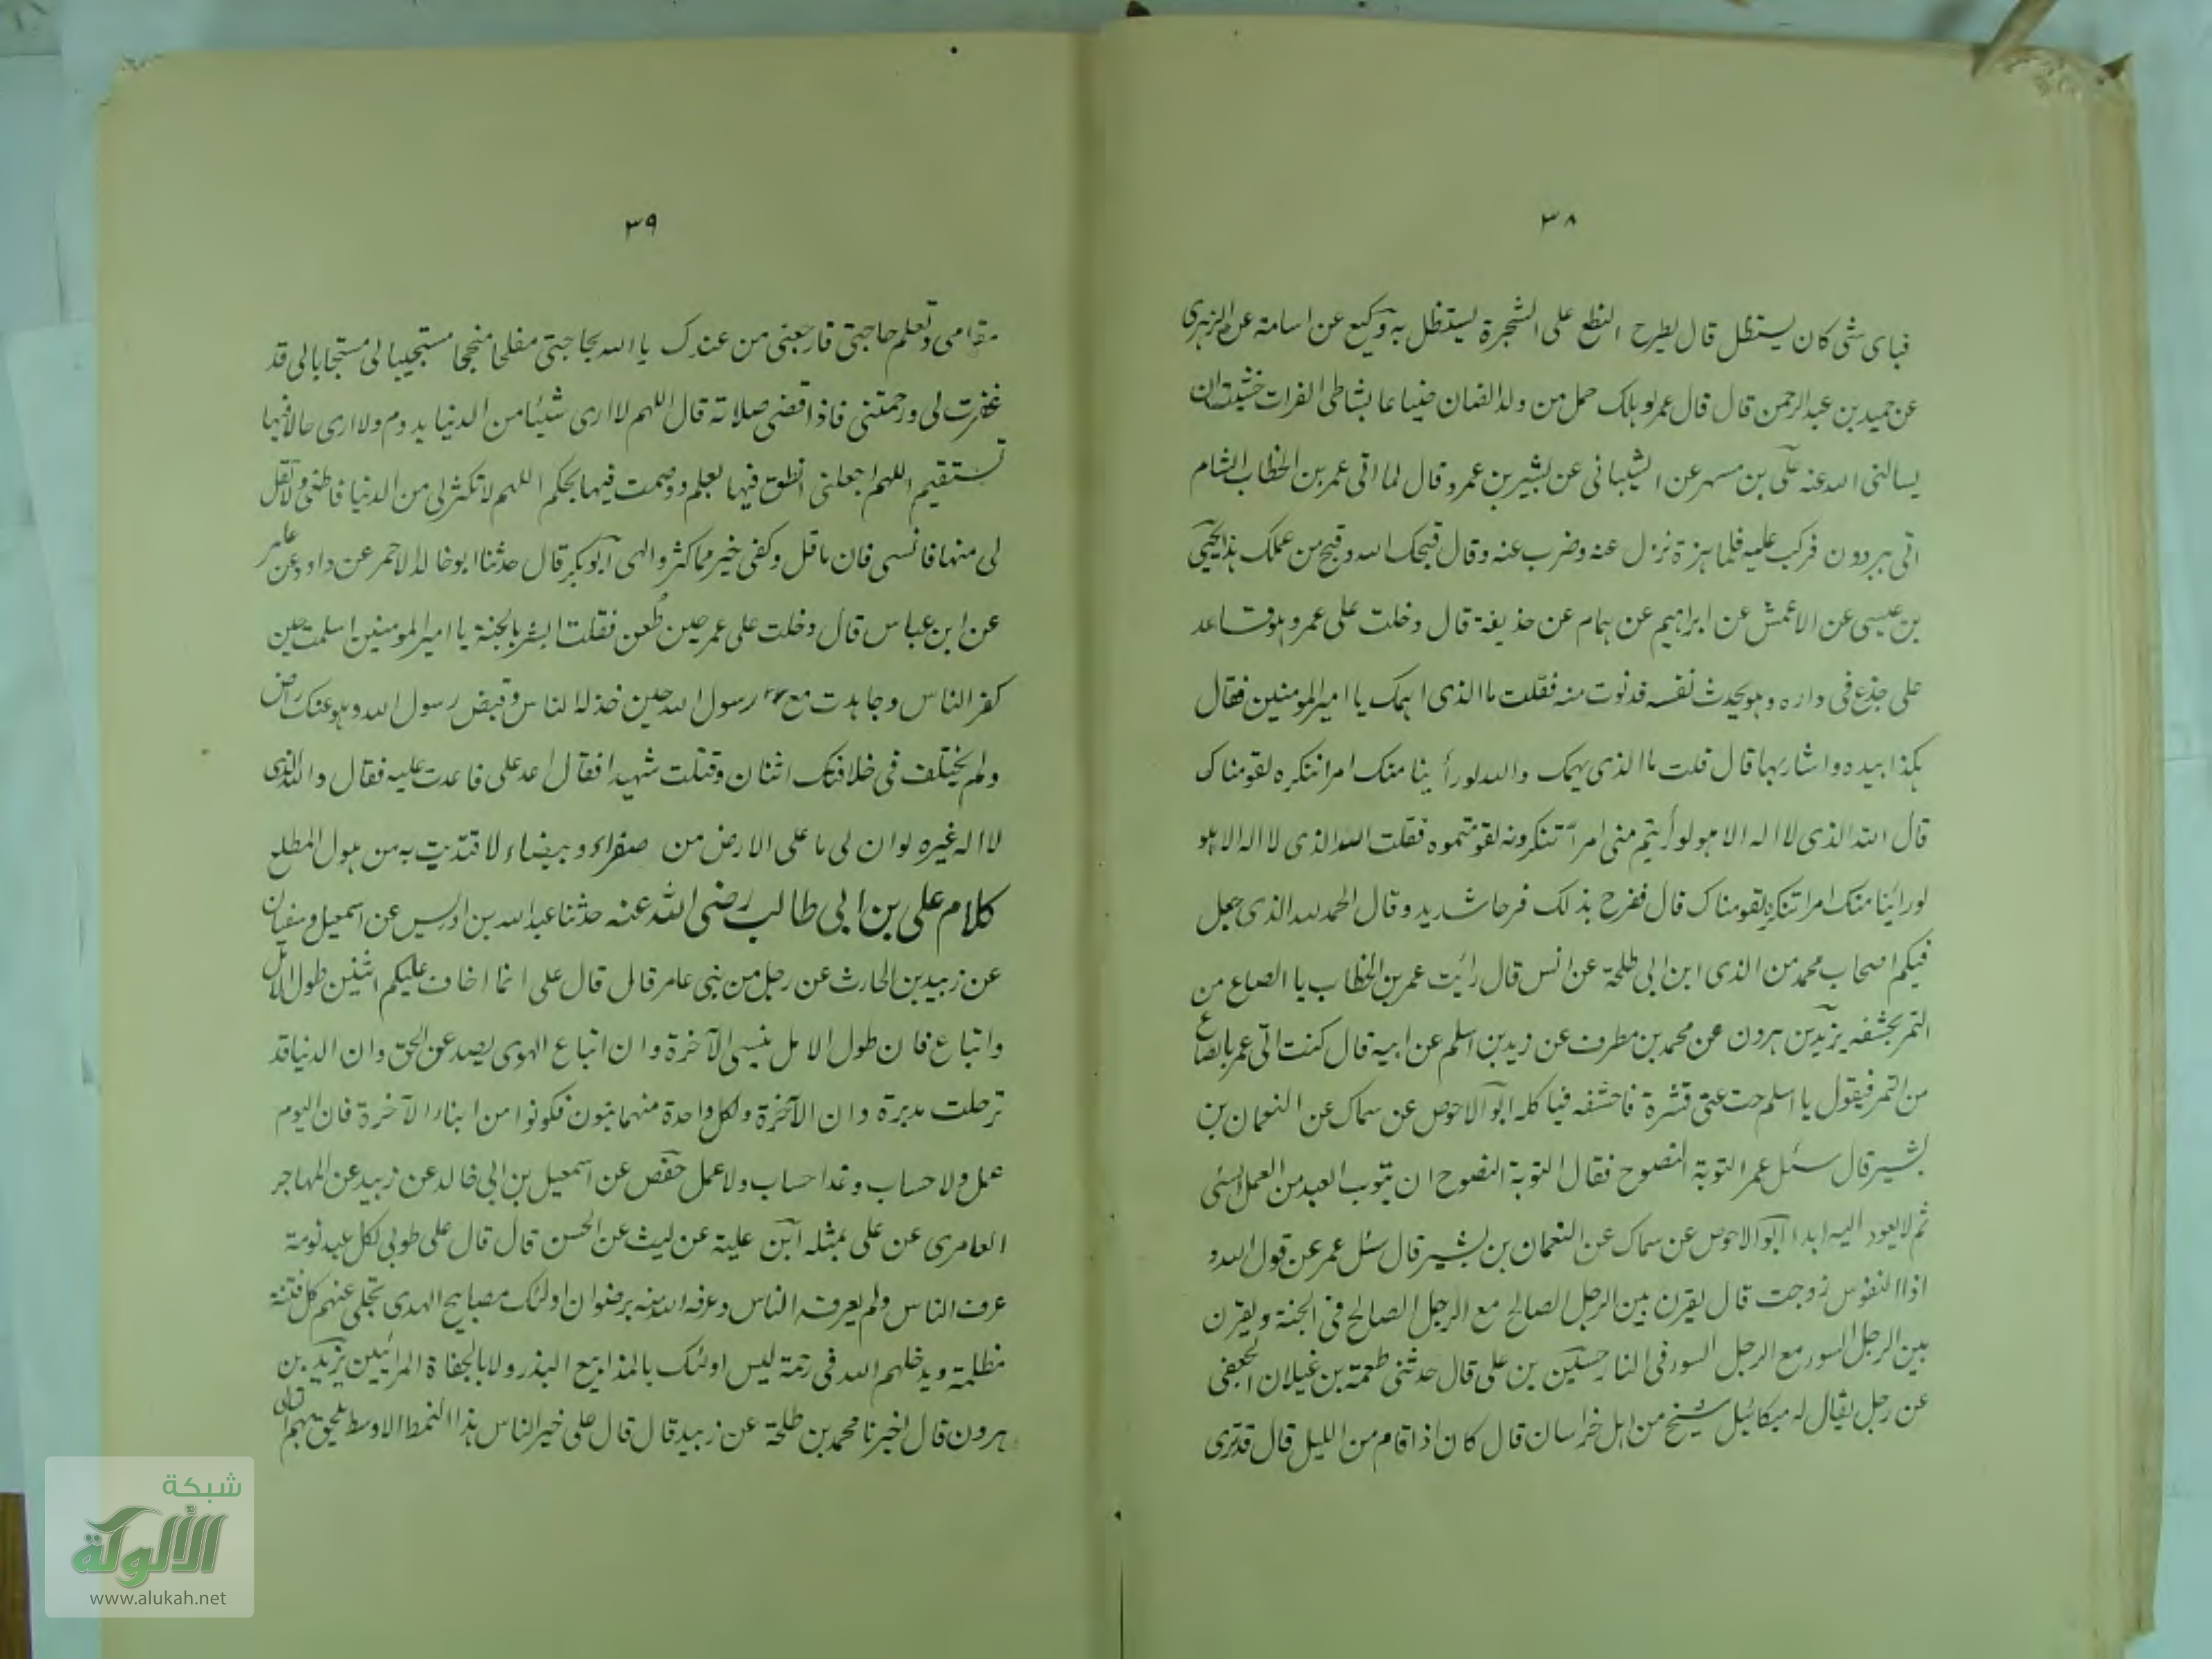 ٣٨
فباى شى كان يستظل قال يطرح النطع على الشجرة يستظل به وكيع عن اسامة عن الزهرى
عن حميد بن عبد الرحمن قال قال عمر لو هلك حمل من ولد الضان ضياعا بشاطى الفرات خشيت ان
يسالنى الله عنه على بن مسهر عن الشيبانى عن بشير بن عمرو قال لما اتى عمر بن الخطاب الشام
اتى ببردون فركب عليه فلما هزة نزل عنه وضرب عنه وقال قبحك الله وقبح من عملك هذا يحيى
بن عيسى عن الاعمش عن ابراهيم عن همام عن حذيفة قال دخلت على عمر وهو قاعد
على جذع فى داره وهو يحدث نفسه فدنوت منه فقلت ما الذى اهمك يا امير المومنين فقال
هكذا بيده واشار بها قال قلت ما الذى يهمك والله لو رأينا منك امرا ننكره لقومناك
قال الله الذى لا اله الا هو لو رأيتم منى امرا تنكرونه لقومتموه فقلت الله الذى لا اله الا هو
لو رائينا منك امرا ننكره لقومناك قال ففرح بذلك فرحا شديد وقال الحمد لله الذى جعل
فيكم اصحاب محمد من الذى ابن ابى طلحة عن انس قال رائيت عمر بن الخطاب يا الصاع من
التمر بحشفه يزيد بن هرون عن محمد بن مطرف عن زيد بن اسلم عن ابيه قال كنت اتى عمر بالصاع
من التمر فيقول يا اسلم حت عنى قشرة فاحشفه فياكله ابو الاحوص عن سماك عن النعمان بن
بشير قال سئل عمر التوبة النصوح فقال التوبة النصوح ان يتوب العبد من العمل السئى
ثم لا يعود اليه ابدا ابو الاحوص عن سماك عن النعمان بن بشير قال سئل عمر عن قول الله و
اذا النفوس زوجت قال يقرن بين الرجل الصالح مع الرجل الصالح فى الجنة ويقرن
بين الرجل السور مع الرجل السور فى النار حسين بن على قال حدثنى طعمة بن غيلان الجعفى
عن رجل يقال له ميكائيل شيخ من اهل خراسان قال كان اذا قام من الليل قال قد ترى
٣٩
مقامى وتعلم حاجتى فارجعنى من عندك يا الله بحاجتى مفلحا منجحا مستجيبا لى مستجابا لى قد
غفرت لى ورحمتنى فاذا قضى صلاتة قال اللهم لا ارى شيئا من الدنيا يدوم ولا ارى حالا فيها
تستقيم اللهم اجعلنى انطق فيها بعلم وصمت فيها بحكم اللهم لا تكثر لى من الدنيا فاطغى ولا تقل
لى منها فانسى فان ما قل وكفى خير مما كثر والهى ابو بكر قال حدثنا ابو خالد الاحمر عن داود عن عامر
عن ابن عباس قال دخلت على عمر حين طعن فقلت ابشر بالجنة يا امير المومنين اسلمت حين
كفر الناس وجاهدت مع رسول الله حين خذله الناس وقبض رسول الله وهو عنك راض
ولم يختلف فى خلافتك اثنان وقتلت شهيدا فقال اعد على فاعدت عليه فقال والله الذى
لا اله غيره لو ان لى ما على الارض من صفراء وبيضاء لافتديت به من هول المطلع
كلام على بن ابى طالب رضى الله عنه حدثنا عبد الله بن ادريس عن اسمعيل وسفيان
عن زبيد بن الحارث عن رجل من بنى عامر قال قال على انما اخاف عليكم اثنين طول الامل
واتباع فان طول الامل ينسى الآخرة وان اتباع الهوى يصد عن الحق وان الدنيا قد
ترحلت مدبرة وان الآخرة ولكل واحدة منهما بنون فكونوا من ابناء الآخرة فان اليوم
عمل ولا حساب وغدا حساب ولا عمل حفص عن اسمعيل بن ابى خالد عن زبيد عن المهاجر
العامرى عن على بمثله ابن علية عن ليث عن الحسن قال قال على طوبى لكل عبد نومة
عرف الناس ولم يعرفه الناس وعرفه الله منه برضوان اولئك مصابيح الهدى تجلى عنهم كل فتنة
مظلمة ويدخلهم الله فى رحمة ليس اولئك بالمذابيع البذر ولا بالجفاة المرائيين يزيد بن
هرون قال اخبرنا محمد بن طلحة عن زبيد قال قال على خير الناس هذا النمط الاوسط يلحق بهم التالى
شبكة
الألوكة
www.alukah.net